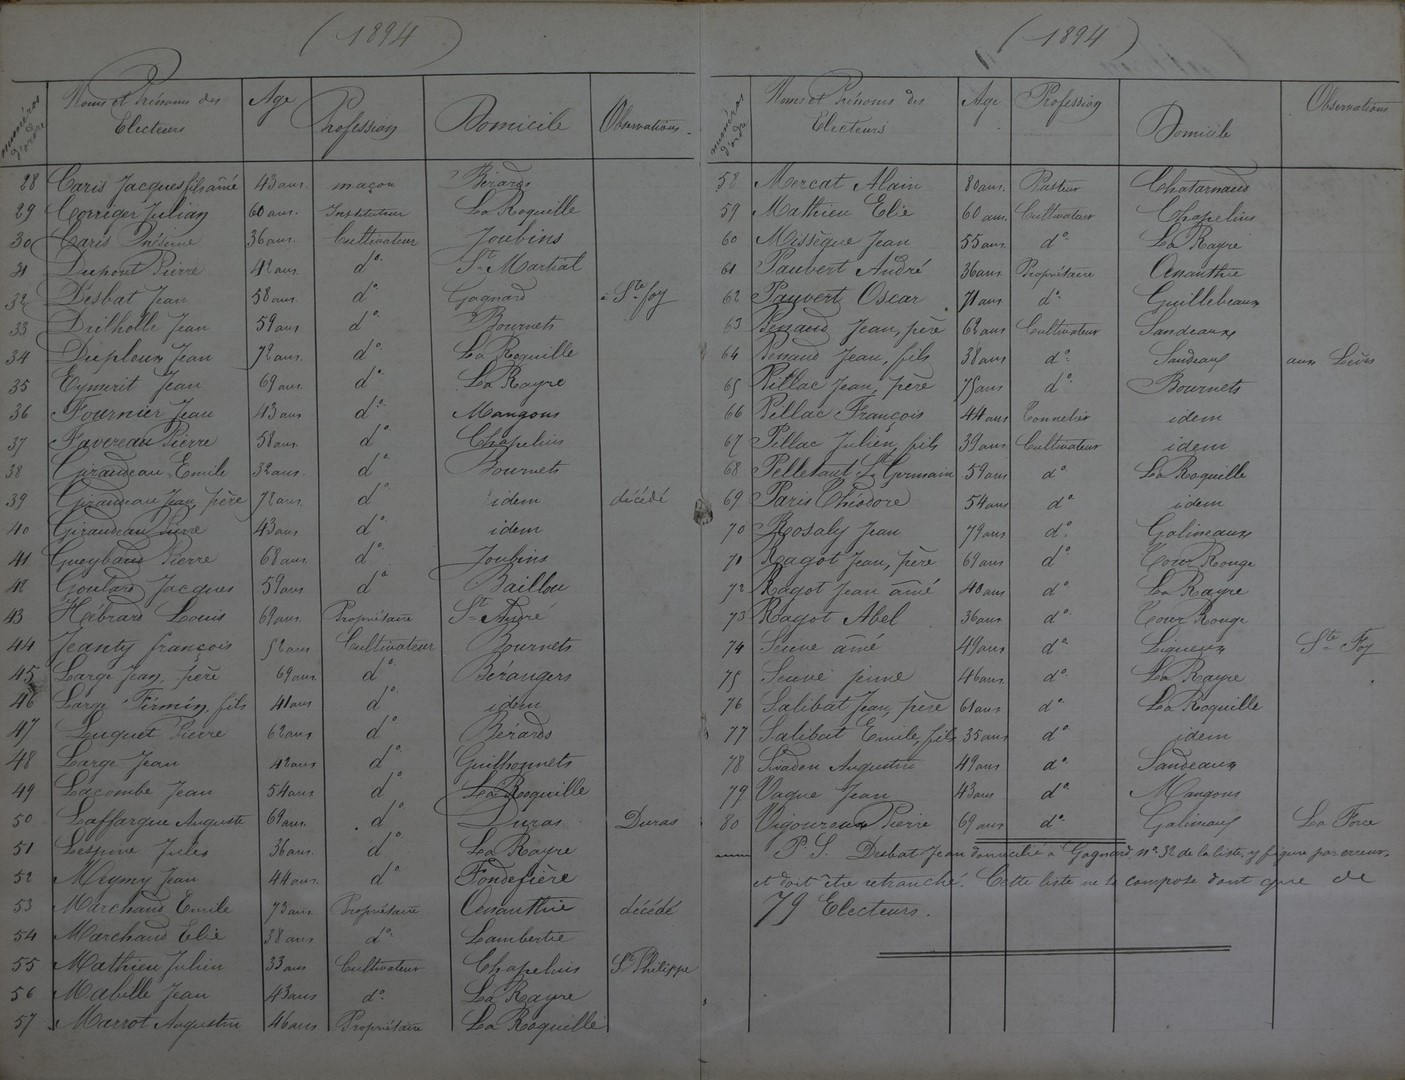 (1894)
numéros d'ordre Noms et Prénoms des Electeurs Age Profession Domicile Observations
28 Caris Jacques fils aîné 43 ans maçon Bérards
29 Corriger Julian 60 ans Instituteur La Roquille
30 Caris Onésime 36 ans Cultivateur Joubins
31 Dupont Pierre 42 ans do St Martial
32 Desbat Jean 58 ans do Gagnard à Ste foy
33 Drilholle Jean 59 ans do Bournets
34 Duploux Jean 72 ans do La Roquille
35 Eymerit Jean 69 ans do La Rayre
36 Fournier Jean 43 ans do Mangons
37 Favereau Pierre 58 ans do Chapelins
38 Giraudeau Emile 32 ans do Bournets
39 Giraudeau Jean, père 72 ans do idem décédé
40 Giraudeau Pierre 43 ans do idem
41 Gueybaud Pierre 68 ans do Joubins
42 Goulard Jacques 59 ans do Baillou
43 Hébrard Louis 69 ans Propriétaire St André
44 Jeanty françois 52 ans Cultivateur Bournets
45 Large Jean, père 69 ans do Bérangers
46 Large Firmin, fils 41 ans do idem
47 Luquet Pierre 62 ans do Bérards
48 Large Jean 42 ans do Guilhonnets
49 Lacombe Jean 54 ans do La Roquille
50 Laffargue Auguste 69 ans do Duras Duras
51 Lespine Jules 36 ans d La Rayre
52 Meymy Jean 44 ans do Fondefière
53 Marchand Emile 73 ans Propriétaire Ananthie décédé
54 Marchand Elie 38 ans do Lambertie
55 Mathieu Julien 33 ans Cultivateur Chapelins St Philippe
56 Mabille Jean 43 ans do La Rayre
57 Marrot Augustin 46 ans Propriétaire La Roquille
(1894)
numéros d'ordre Noms et Prénoms des Electeurs Age Profession Domicile Observations
58 Mercat Alain 80 ans Pasteur Chatarnaud
59 Mathieu Elie 60 ans Cultivateur Chapelins
60 Missègue Jean 55 ans do La Rayre
61 Paubert André 36 ans Propriétaire Ananthie
62 Pauvert Oscar 71 ans do Guillebeaux
63 Jean, père 62 ans Cultivateur Sandeaux
64 Penaud Jean, fils 38 ans do Sandeaux aux Lèves
65 Pillac Jean, père 75 ans do Bournets
66 Pillac François 44 ans Tonnelier idem
67 Pillac Julien, fils 39 ans Cultivateur idem
68 Pelletant St Germain 59 ans do La Roquille
69 Paris Théodore 54 ans do idem
70 Rosaly Jean 79 ans do Galineaux
71 Ragot Jean, père 69 ans do Tour Rouge
72 Ragot Jean aîné 40 ans do La Rayre
73 Ragot Abel 36 ans do Tour Rouge
74 Seuve aîné 49 ans do Ligueux Ste Foy
75 Seuve jeune 46 ans do La Rayre
76 Salibat Jean, père 61 ans do La Roquille
77 Salibat Emile, fils 35 ans do idem
78 Sivadon Augustin 49 ans do Sandeaux
79 Vague Jean 43 ans do Mangons
80 Vigoureux Pierre 69 ans do Galineaux La Force
P. S. Desbat Jean domicilié à Gagnard, no 32 de la liste, y figure par erreur,
et doit être retranché. Cette liste ne se compose dont que de
79 Electeurs.